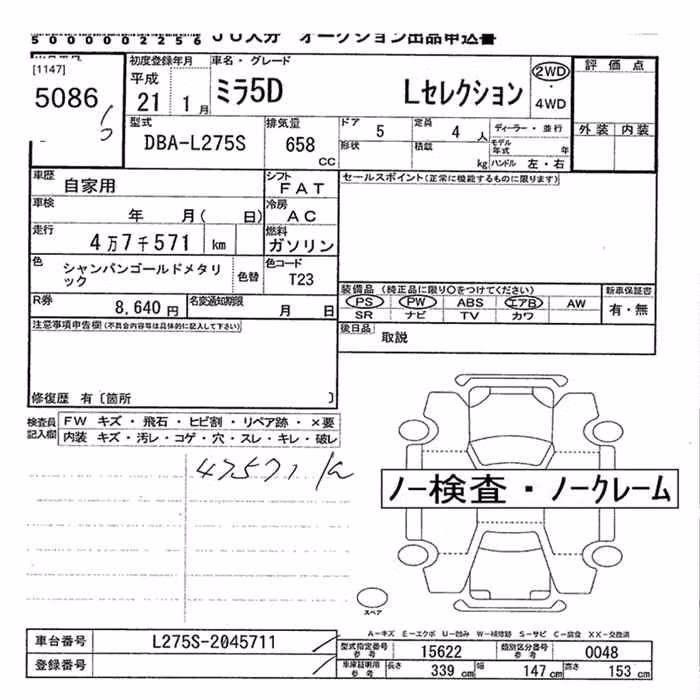 5000002256 JU大分 オークション出品申込書
[1147]
5086
初度登録年月
平成
21 1月
車名・グレード
ミラ5D Lセレクション
2WD
・
4WD
評価点
外装 内装
型式
DBA-L275S
排気量
658
cc
ドア 5
定員 4人
形状
積載 kg
ディーラー・並行
モデル年式 年
ハンドル 左・右
車歴
自家用
シフト
FAT
セールスポイント(正常に機能するものに限ります)
車検
年 月( 日)
冷房
AC
走行
4万7千571 km
燃料
ガソリン
色
シャンパンゴールドメタリック
色替
色コード
T23
R券
8,640円
名変通知期限
月 日
装備品 (純正品に限り○をつけてください)
PS PW ABS エアB AW
SR ナビ TV カワ
新車保証書
有・無
後日品
取説
注意事項申告欄(不具合内容等は具体的に記入して下さい)
修復歴 有〔箇所 〕
検査員記入欄
FW キズ・飛石・ヒビ割・リペア跡・×要
内装 キズ・汚レ・コゲ・穴・スレ・キレ・破レ
47571 km
ノー検査・ノークレーム
スペア
A-キズ E-エクボ U-凹み W-補修跡 S-サビ C-腐食 XX-交換済
車台番号
L275S-2045711
登録番号
型式指定番号
参考
15622
類別区分番号
参考
0048
車庫証明用
参考
長さ 339cm
幅 147cm
高さ 153cm